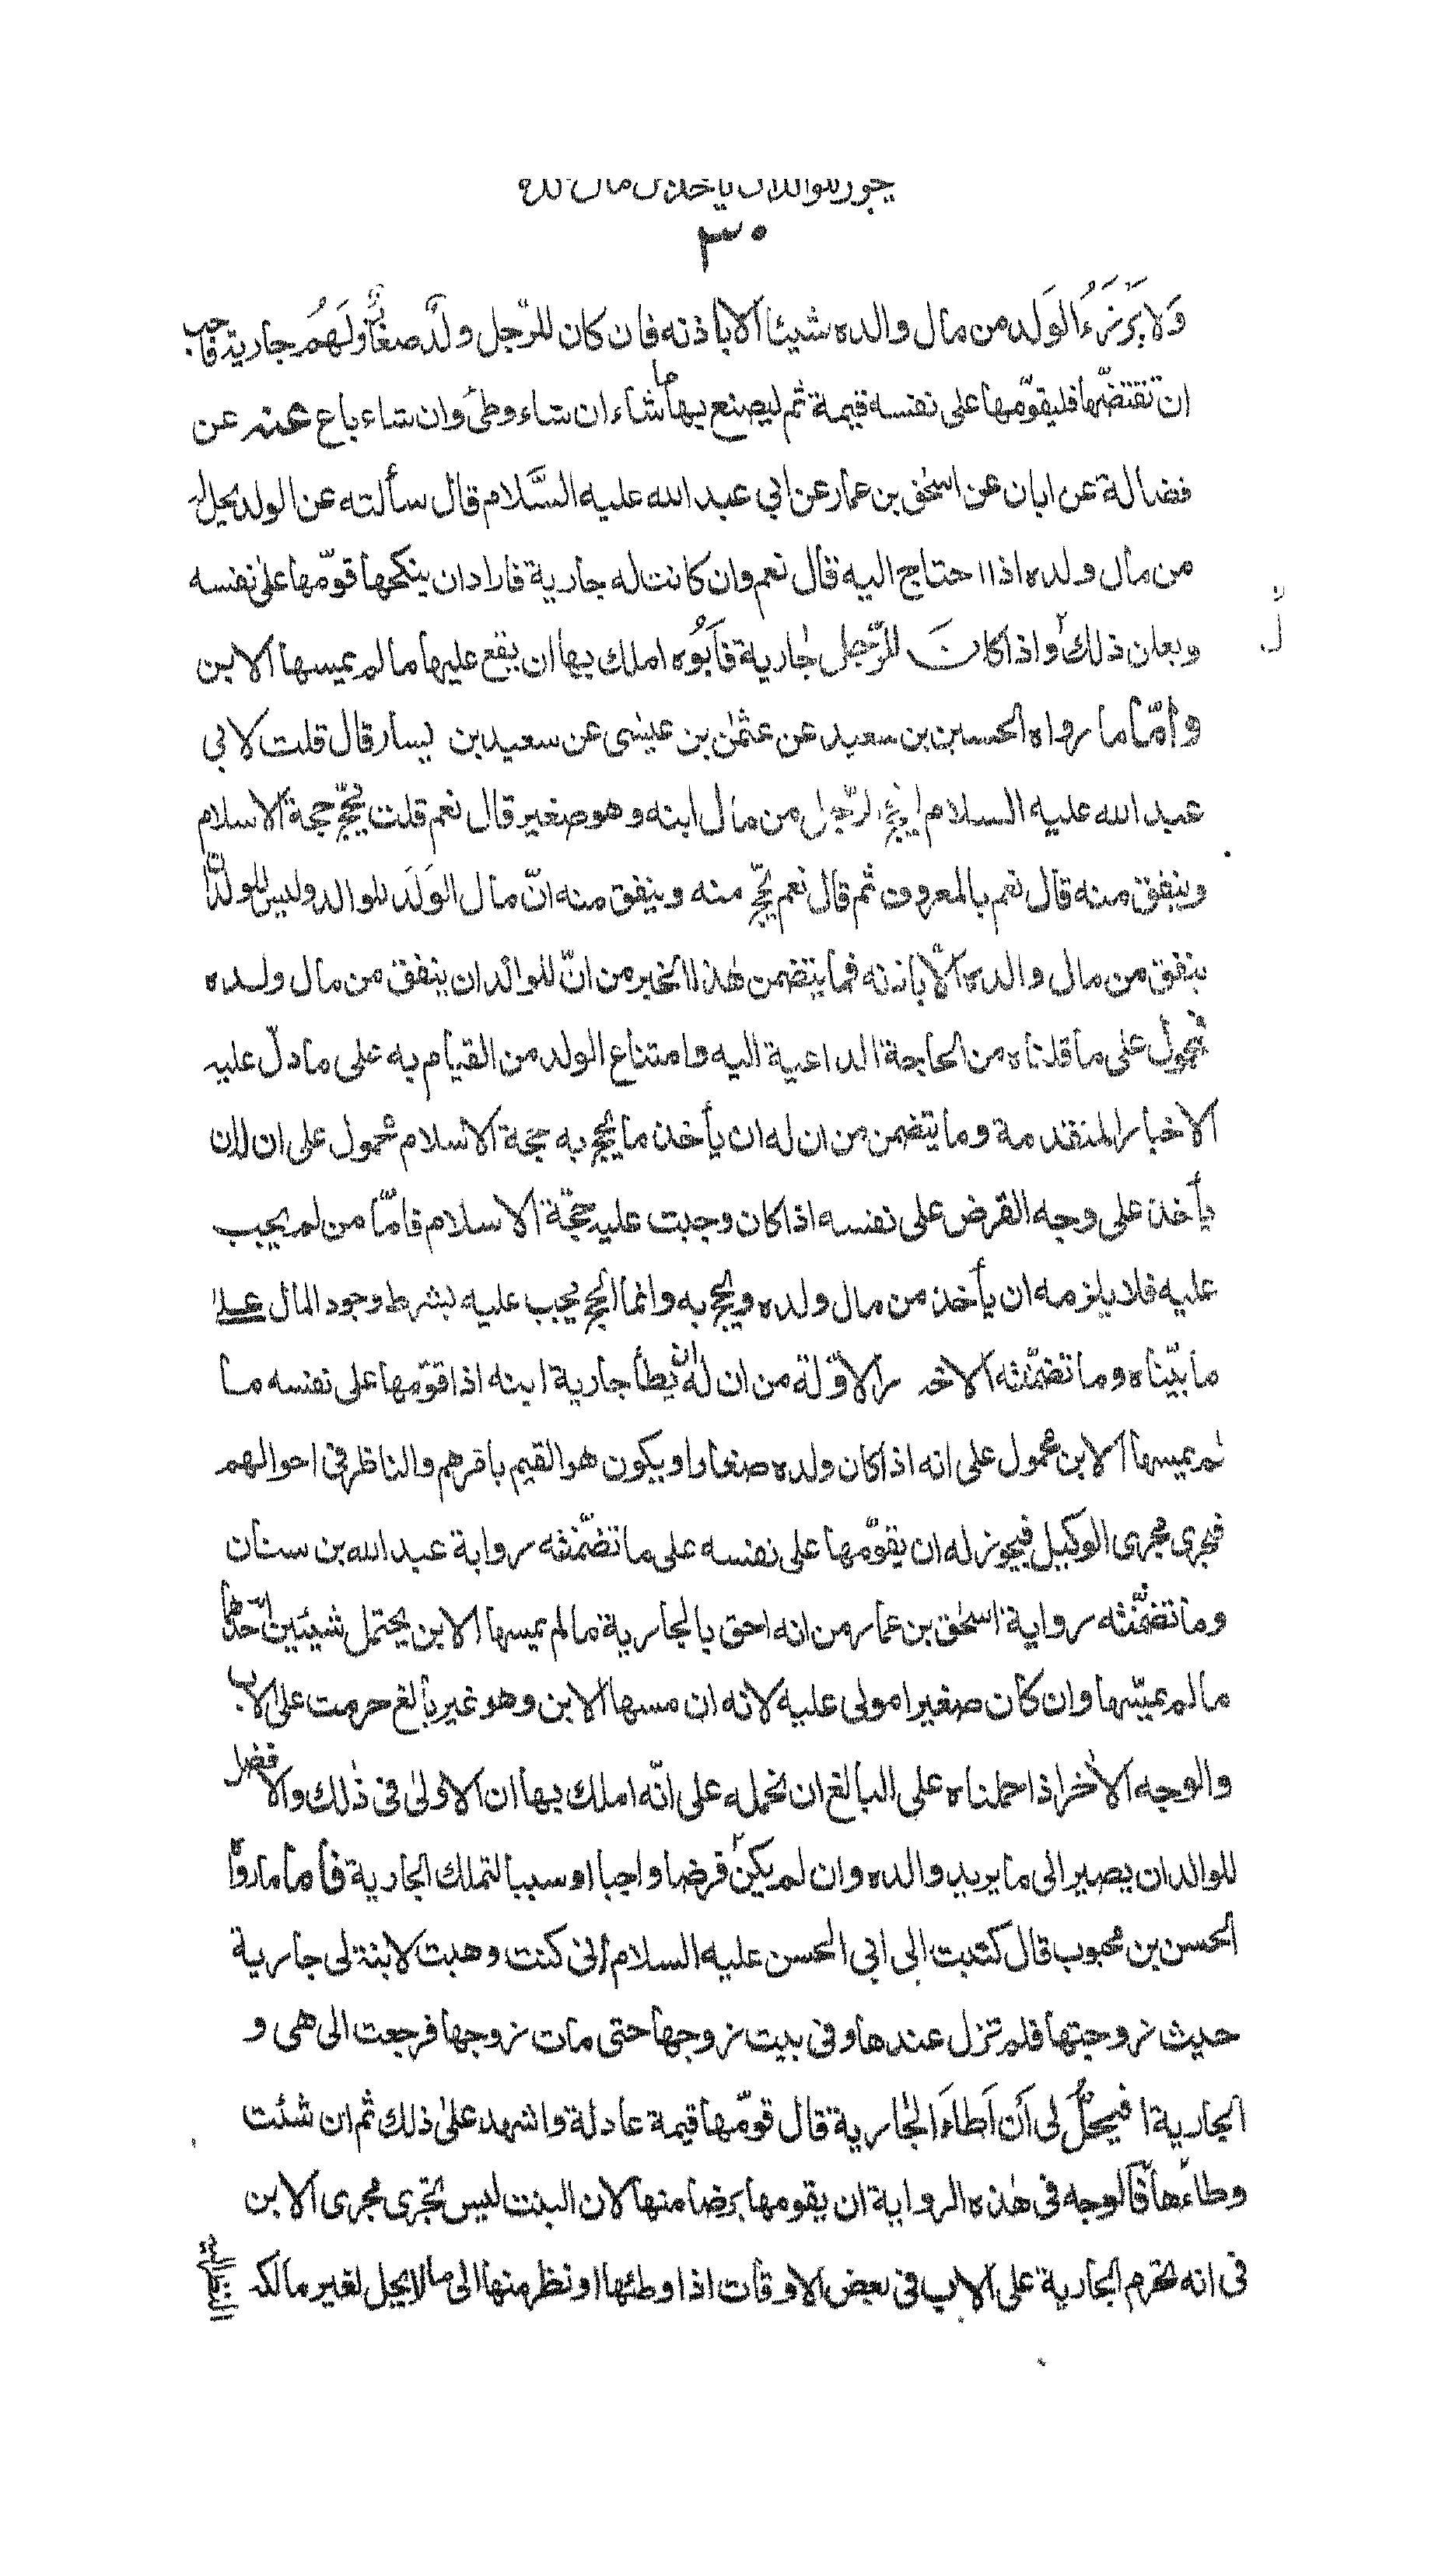 يجوز للوالد ان ياخذ من مال ولده
٣٠
وَلا يَرزَءُ الوَلد من مال والده شيئا الا باذنه فان كان للرّجل ولد صغار ولَهُم جارية فاحب
ان تقتضّها فليقوّمها على نفسه قيمة ثم ليصنع بها ما شاء ان شاء وطئ وان شاء باع عنه عن
فضالة عن ابان عن اسحٰق بن عمار عن ابي عبد الله عليه السَّلام قال سألته عن الوالد يحل له
من مال ولده اذا احتاج اليه قال نعم وان كانت له جارية فاراد ان ينكحها قوّمها على نفسه
ويعلن ذلك واذا كانَ للرّجل جارية فَأبُوه املك بها ان يقع عليها ما لم يمسها الابن
وأمّا ما رواه الحسين بن سعيد عن عثمٰن بن عيسى عن سعيد بن يسار قال قلت لابي
عبد الله عليه السلام ايحجّ الرّجل من مال ابنه وهو صغير قال نعم قلت يحجّ حجة الاسلام
وينفق منه قال نعم بالمعروف ثم قال نعم يحجّ منه وينفق منه انّ مال الوَلَد للوالد وليس للولد ان
ينفق من مال والده الّا باذنه فما يتضمن هٰذا الخبر من انّ للوالد ان ينفق من مال ولده
محمول على ما قلناه من الحاجة الداعية اليه وامتناع الولد من القيام به على ما دلّ عليه
الاخبار المتقدمة وما يتضمن من ان له ان يأخذ ما يحج به حجة الاسلام محمول على ان له ان
يأخذ على وجه القرض على نفسه اذا كان وجبت عليه حجّة الاسلام فامّا من لم يجب
عليه فلا يلزمه ان يأخذ من مال ولده ويحج به وانما الحج يجب عليه بشرط وجود المال على
ما بيّناه وما تضمّنته الاخبار الاوّلة من ان له ان يطأ جارية ابنه اذا قوّمها على نفسه ما
لم يمسها الابن محمول على انه اذا كان ولده صغارا ويكون هو القيم بامرهم والناظر فى احوالهم
فيجرى مجرى الوكيل فيجوز له ان يقوّمها على نفسه على ما تضمّنته رواية عبد الله بن سنان
وما تضمّنته رواية اسحٰق بن عمار من انه احق بالجارية ما لم يمسها الابن يحتمل شيئين احدهما
ما لم يمسّها وان كان صغيرا مولى عليه لانه ان مسها الابن وهو غير بالغ حرمت على الاب
والوجه الاٰخر اذا حملناه على البالغ ان نحمله على انّه املك بها ان الاولىٰ فى ذٰلك والافضل
للوالد ان يصير الى ما يريد والده وان لم يكن فرضا واجبا او سببا لتملك الجارية فأما ما رواه
الحسن بن محبوب قال كتبت الى ابى الحسن عليه السلام انى كنت وهبت لابنة لى جارية
حيث زوجتها فلم تزل عندها وفى بيت زوجها حتى مات زوجها فرجعت الى هى و
الجارية افيحلّ لى أَن اَطاءَ الجارية قال قوّمها قيمة عادلة واشهد علىٰ ذلك ثم ان شئت
وطاءها فالوجه فى هٰذه الرواية ان يقومها برضا منها لان البنت ليس تجرى مجرى الابن
فى انه تحرم الجارية على الاب فى بعض الاوقات اذا وطئها او نظر منها الى ما لا يحل لغير مالكه